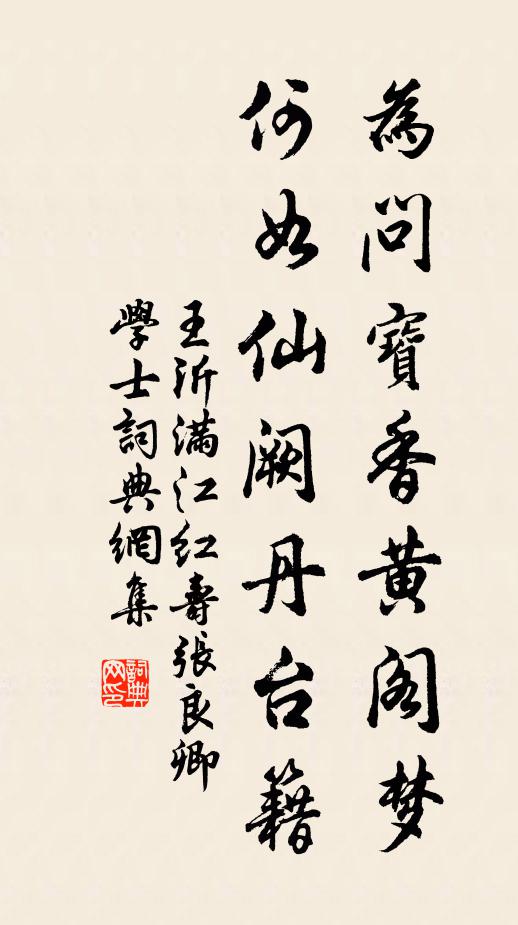 為問寶香黃阁梦
何如仙阙丹台籍
王沂满江红壽張良卿
學士詞典網集
詞典网印